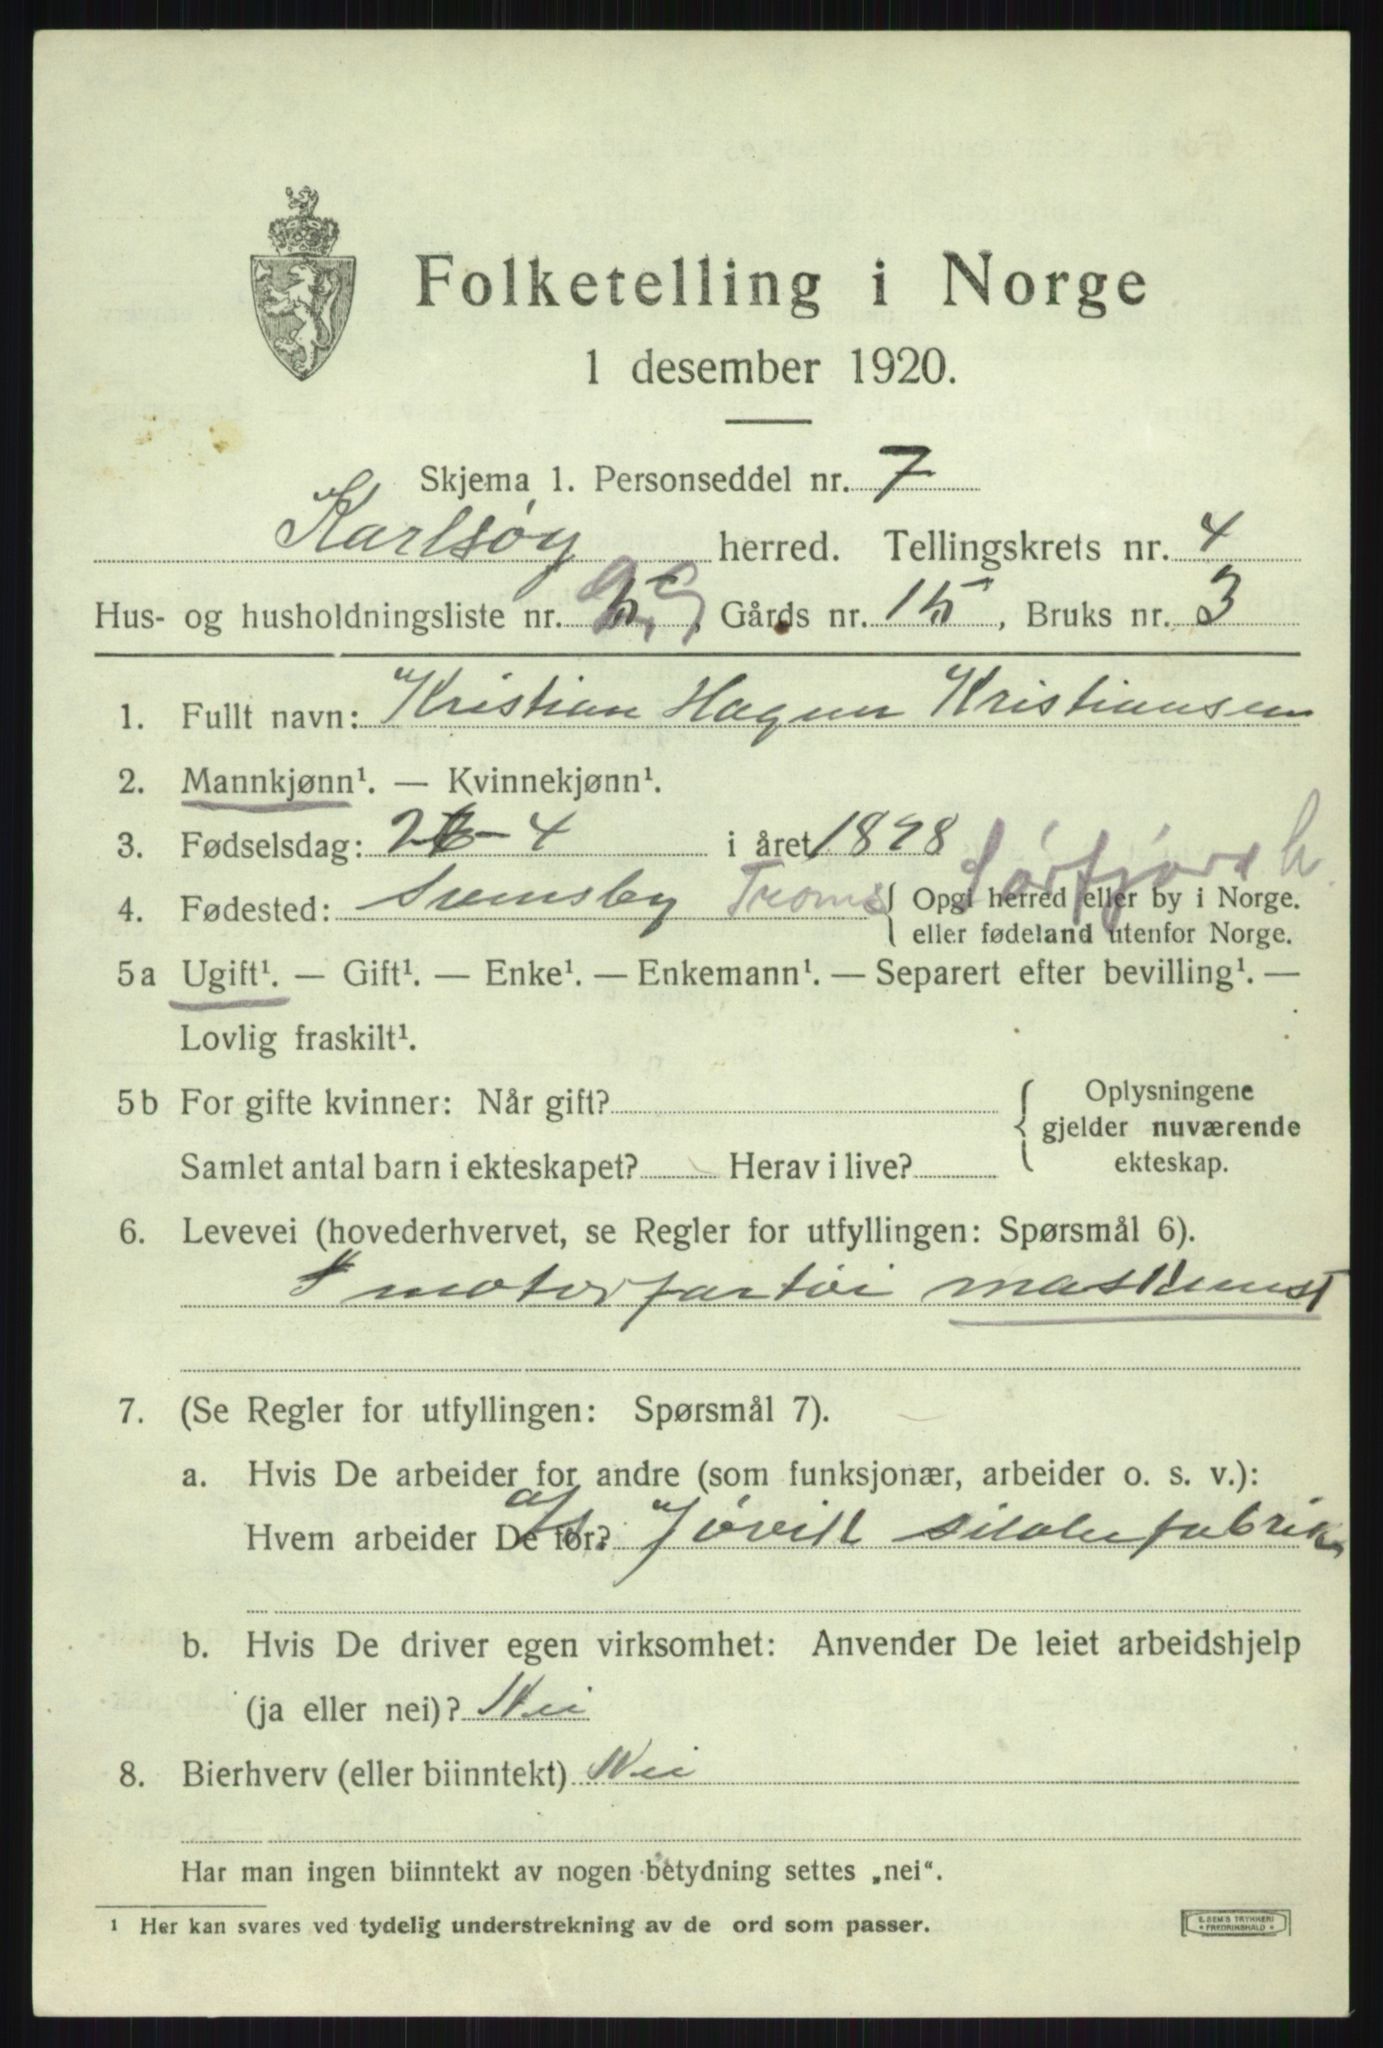 Folketelling i Norge
1 desember 1920.
Skjema 1. Personseddel nr. 7
Karlsøy herred. Tellingskrets nr. 4
Hus- og husholdningsliste nr. Gårds nr. 15, Bruks nr. 3
1. Fullt navn: Kristian Hagun Kristiansen
2. Mannkjønn¹. — Kvinnekjønn¹.
3. Fødselsdag: 26-4 i året 1898 Sørfjord h.
4. Fødested: Svensby Troms { Opgi herred eller by i Norge.
eller fødeland utenfor Norge.
5a Ugift¹. — Gift¹. — Enke¹. — Enkemann¹. — Separert efter bevilling¹. —
Lovlig fraskilt¹.
5b For gifte kvinner: Når gift? { Oplysningene
gjelder nuværende
Samlet antal barn i ekteskapet? Herav i live? ekteskap.
6. Levevei (hovederhvervet, se Regler for utfyllingen: Spørsmål 6).
motorfartöi maskinist
7. (Se Regler for utfyllingen: Spørsmål 7).
a. Hvis De arbeider for andre (som funksjonær, arbeider o. s. v.):
Hvem arbeider De for? a/s Jøvik sildefabrik
b. Hvis De driver egen virksomhet: Anvender De leiet arbeidshjelp
(ja eller nei)? Nei
8. Bierhverv (eller biinntekt) Nei
Har man ingen biinntekt av nogen betydning settes „nei“.
¹ Her kan svares ved tydelig understrekning av de ord som passer.
E. SEM'S TRYKKERI
FREDRIKSHALD